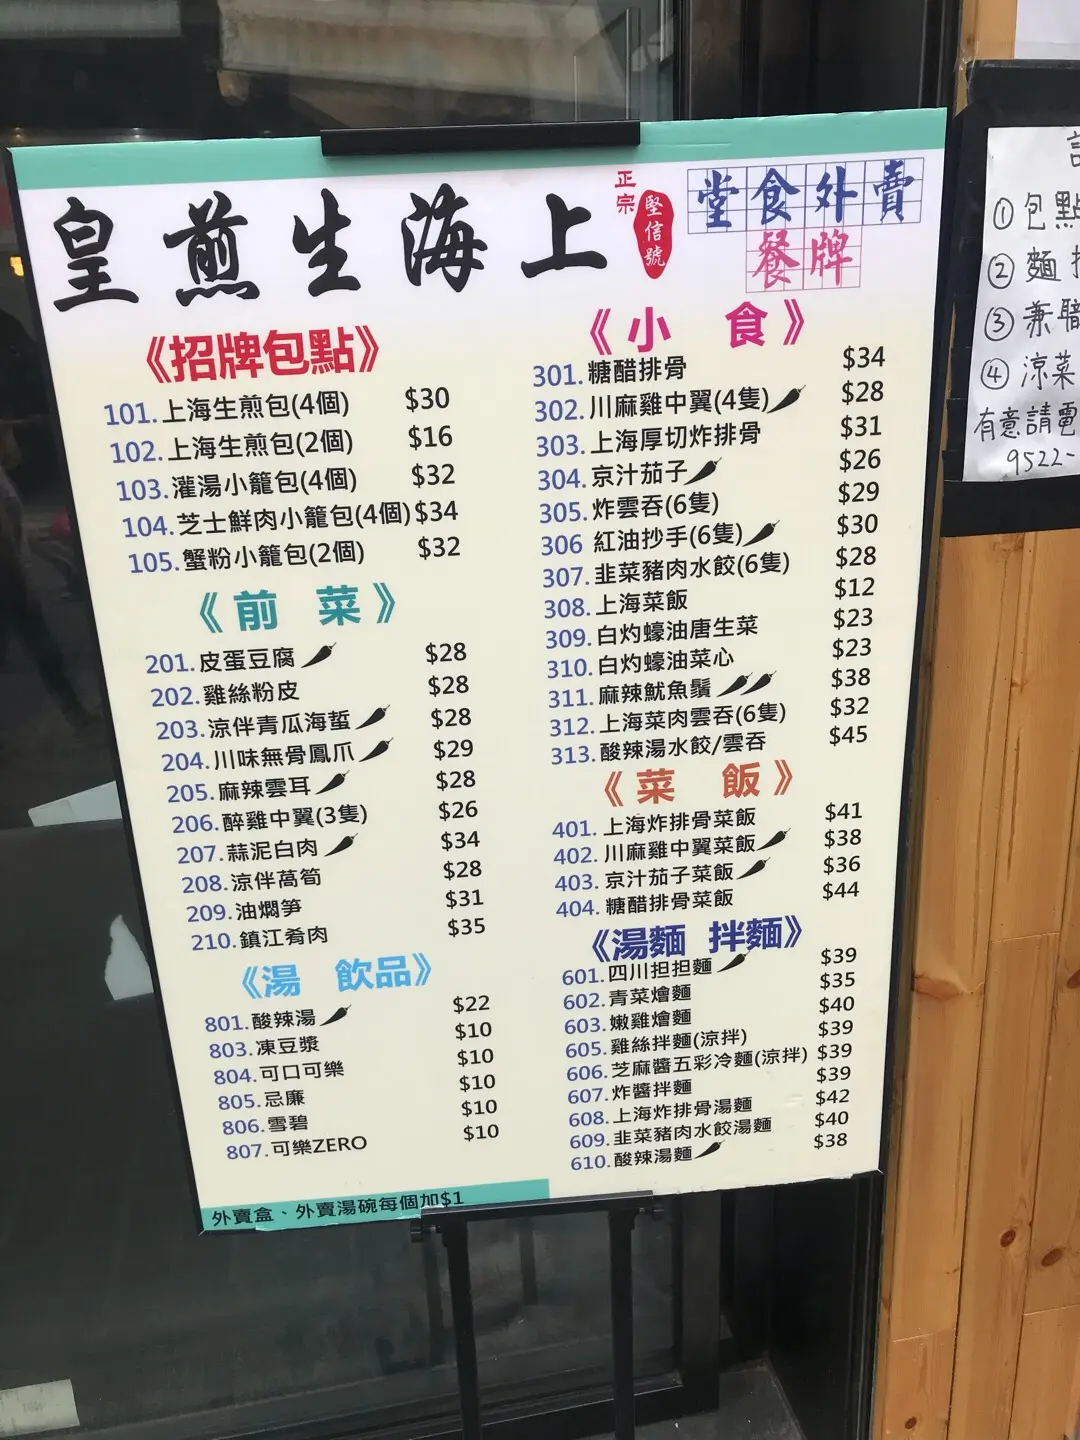 皇煎生海上
正宗
堅信號
堂食外賣
餐牌
《招牌包點》
101.上海生煎包(4個) $30
102.上海生煎包(2個) $16
103.灌湯小籠包(4個) $32
104.芝士鮮肉小籠包(4個) $34
105.蟹粉小籠包(2個) $32
《前 菜》
201.皮蛋豆腐 $28
202.雞絲粉皮 $28
203.涼伴青瓜海蜇 $28
204.川味無骨鳳爪 $29
205.麻辣雲耳 $28
206.醉雞中翼(3隻) $26
207.蒜泥白肉 $34
208.涼伴萵筍 $28
209.油燜笋 $31
210.鎮江肴肉 $35
《湯 飲品》
801.酸辣湯 $22
803.凍豆漿 $10
804.可口可樂 $10
805.忌廉 $10
806.雪碧 $10
807.可樂ZERO $10
外賣盒、外賣湯碗每個加$1
《小 食》
301.糖醋排骨 $34
302.川麻雞中翼(4隻) $28
303.上海厚切炸排骨 $31
304.京汁茄子 $26
305.炸雲吞(6隻) $29
306 紅油抄手(6隻) $30
307.韭菜豬肉水餃(6隻) $28
308.上海菜飯 $12
309.白灼蠔油唐生菜 $23
310.白灼蠔油菜心 $23
311.麻辣魷魚鬚 $38
312.上海菜肉雲吞(6隻) $32
313.酸辣湯水餃/雲吞 $45
《菜 飯》
401.上海炸排骨菜飯 $41
402.川麻雞中翼菜飯 $38
403.京汁茄子菜飯 $36
404.糖醋排骨菜飯 $44
《湯麵 拌麵》
601.四川担担麵 $39
602.青菜燴麵 $35
603.嫩雞燴麵 $40
605.雞絲拌麵(涼拌) $39
606.芝麻醬五彩冷麵(涼拌) $39
607.炸醬拌麵 $39
608.上海炸排骨湯麵 $42
609.韭菜豬肉水餃湯麵 $40
610.酸辣湯麵 $38
①包點
②麵
③兼職
④涼菜
有意請電
9522-